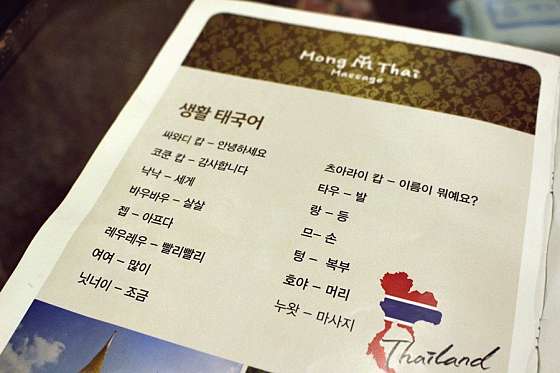 Mong Thai
Massage
생활 태국어
싸와디 캅 - 안녕하세요
코쿤 캅 - 감사합니다
낙낙 - 세게
바우바우 - 살살
쩹 - 아프다
레우레우 - 빨리빨리
여여 - 많이
닛너이 - 조금
츠아라이 캅 - 이름이 뭐예요?
타우 - 발
랑 - 등
므- 손
텅 - 복부
호야 - 머리
누왓 - 마사지
Thailand